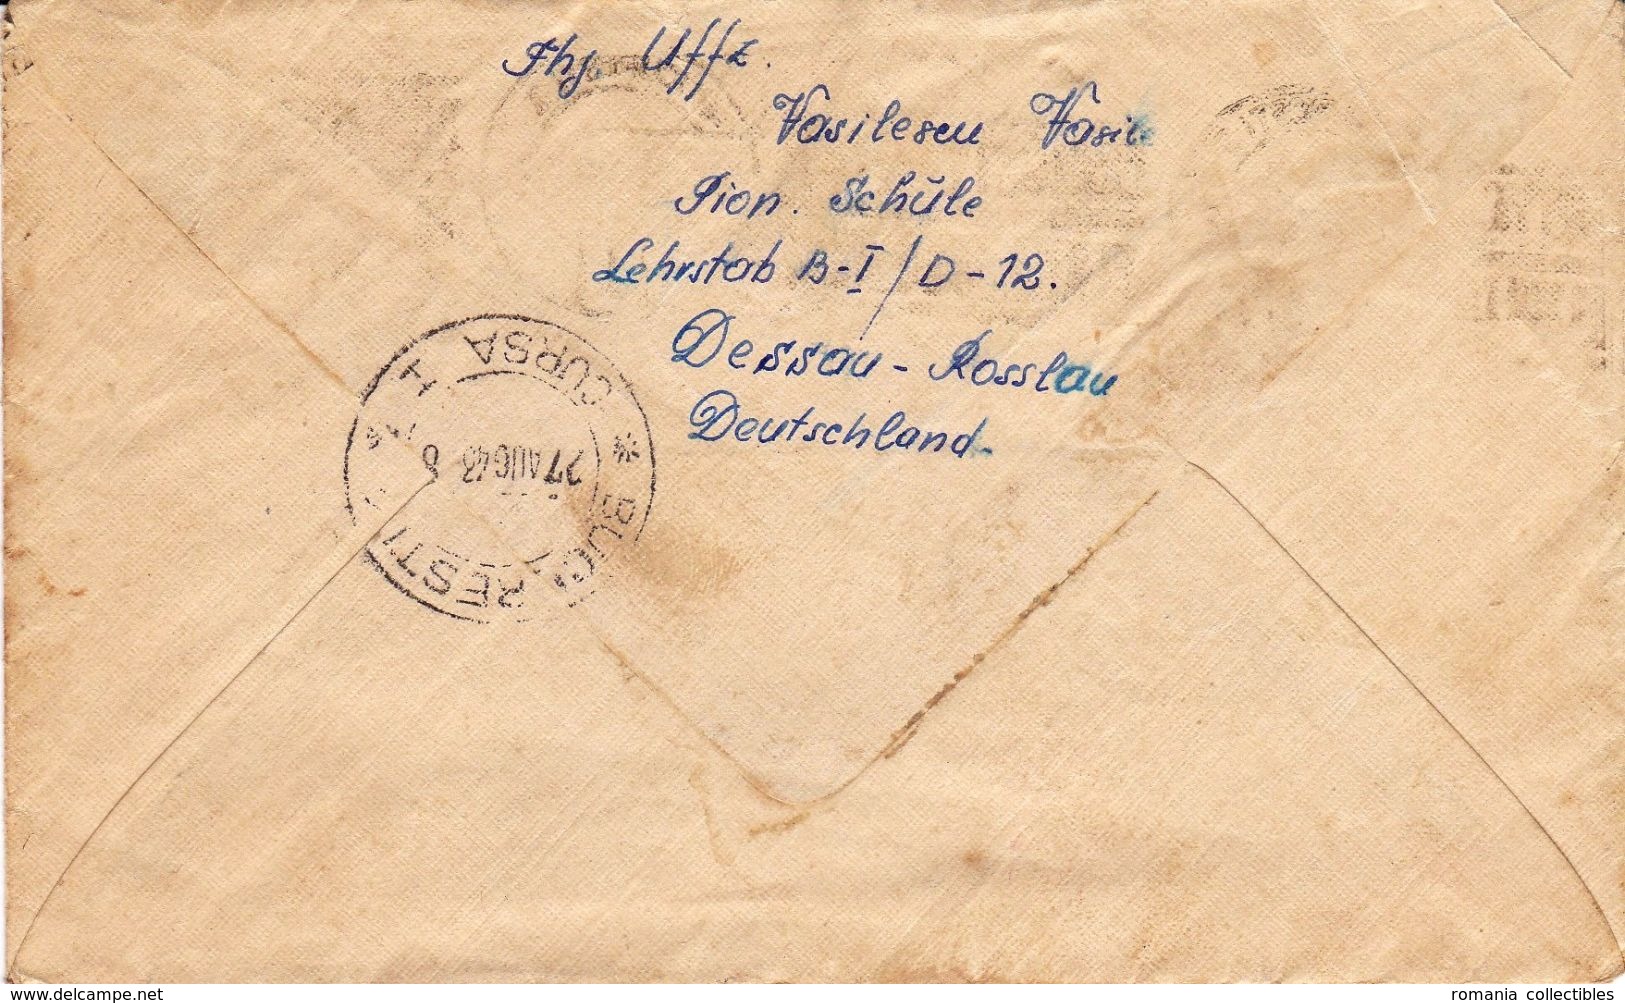 Fhj Uffz.
Vasilescu Vasile
Pion. Schüle
Lehrstab B-I/D-12.
Dessau - Rosslau
Deutschland
CURSA
27 AUG 43 8
BUCURESTI
www.delcampe.net
romania collectibles